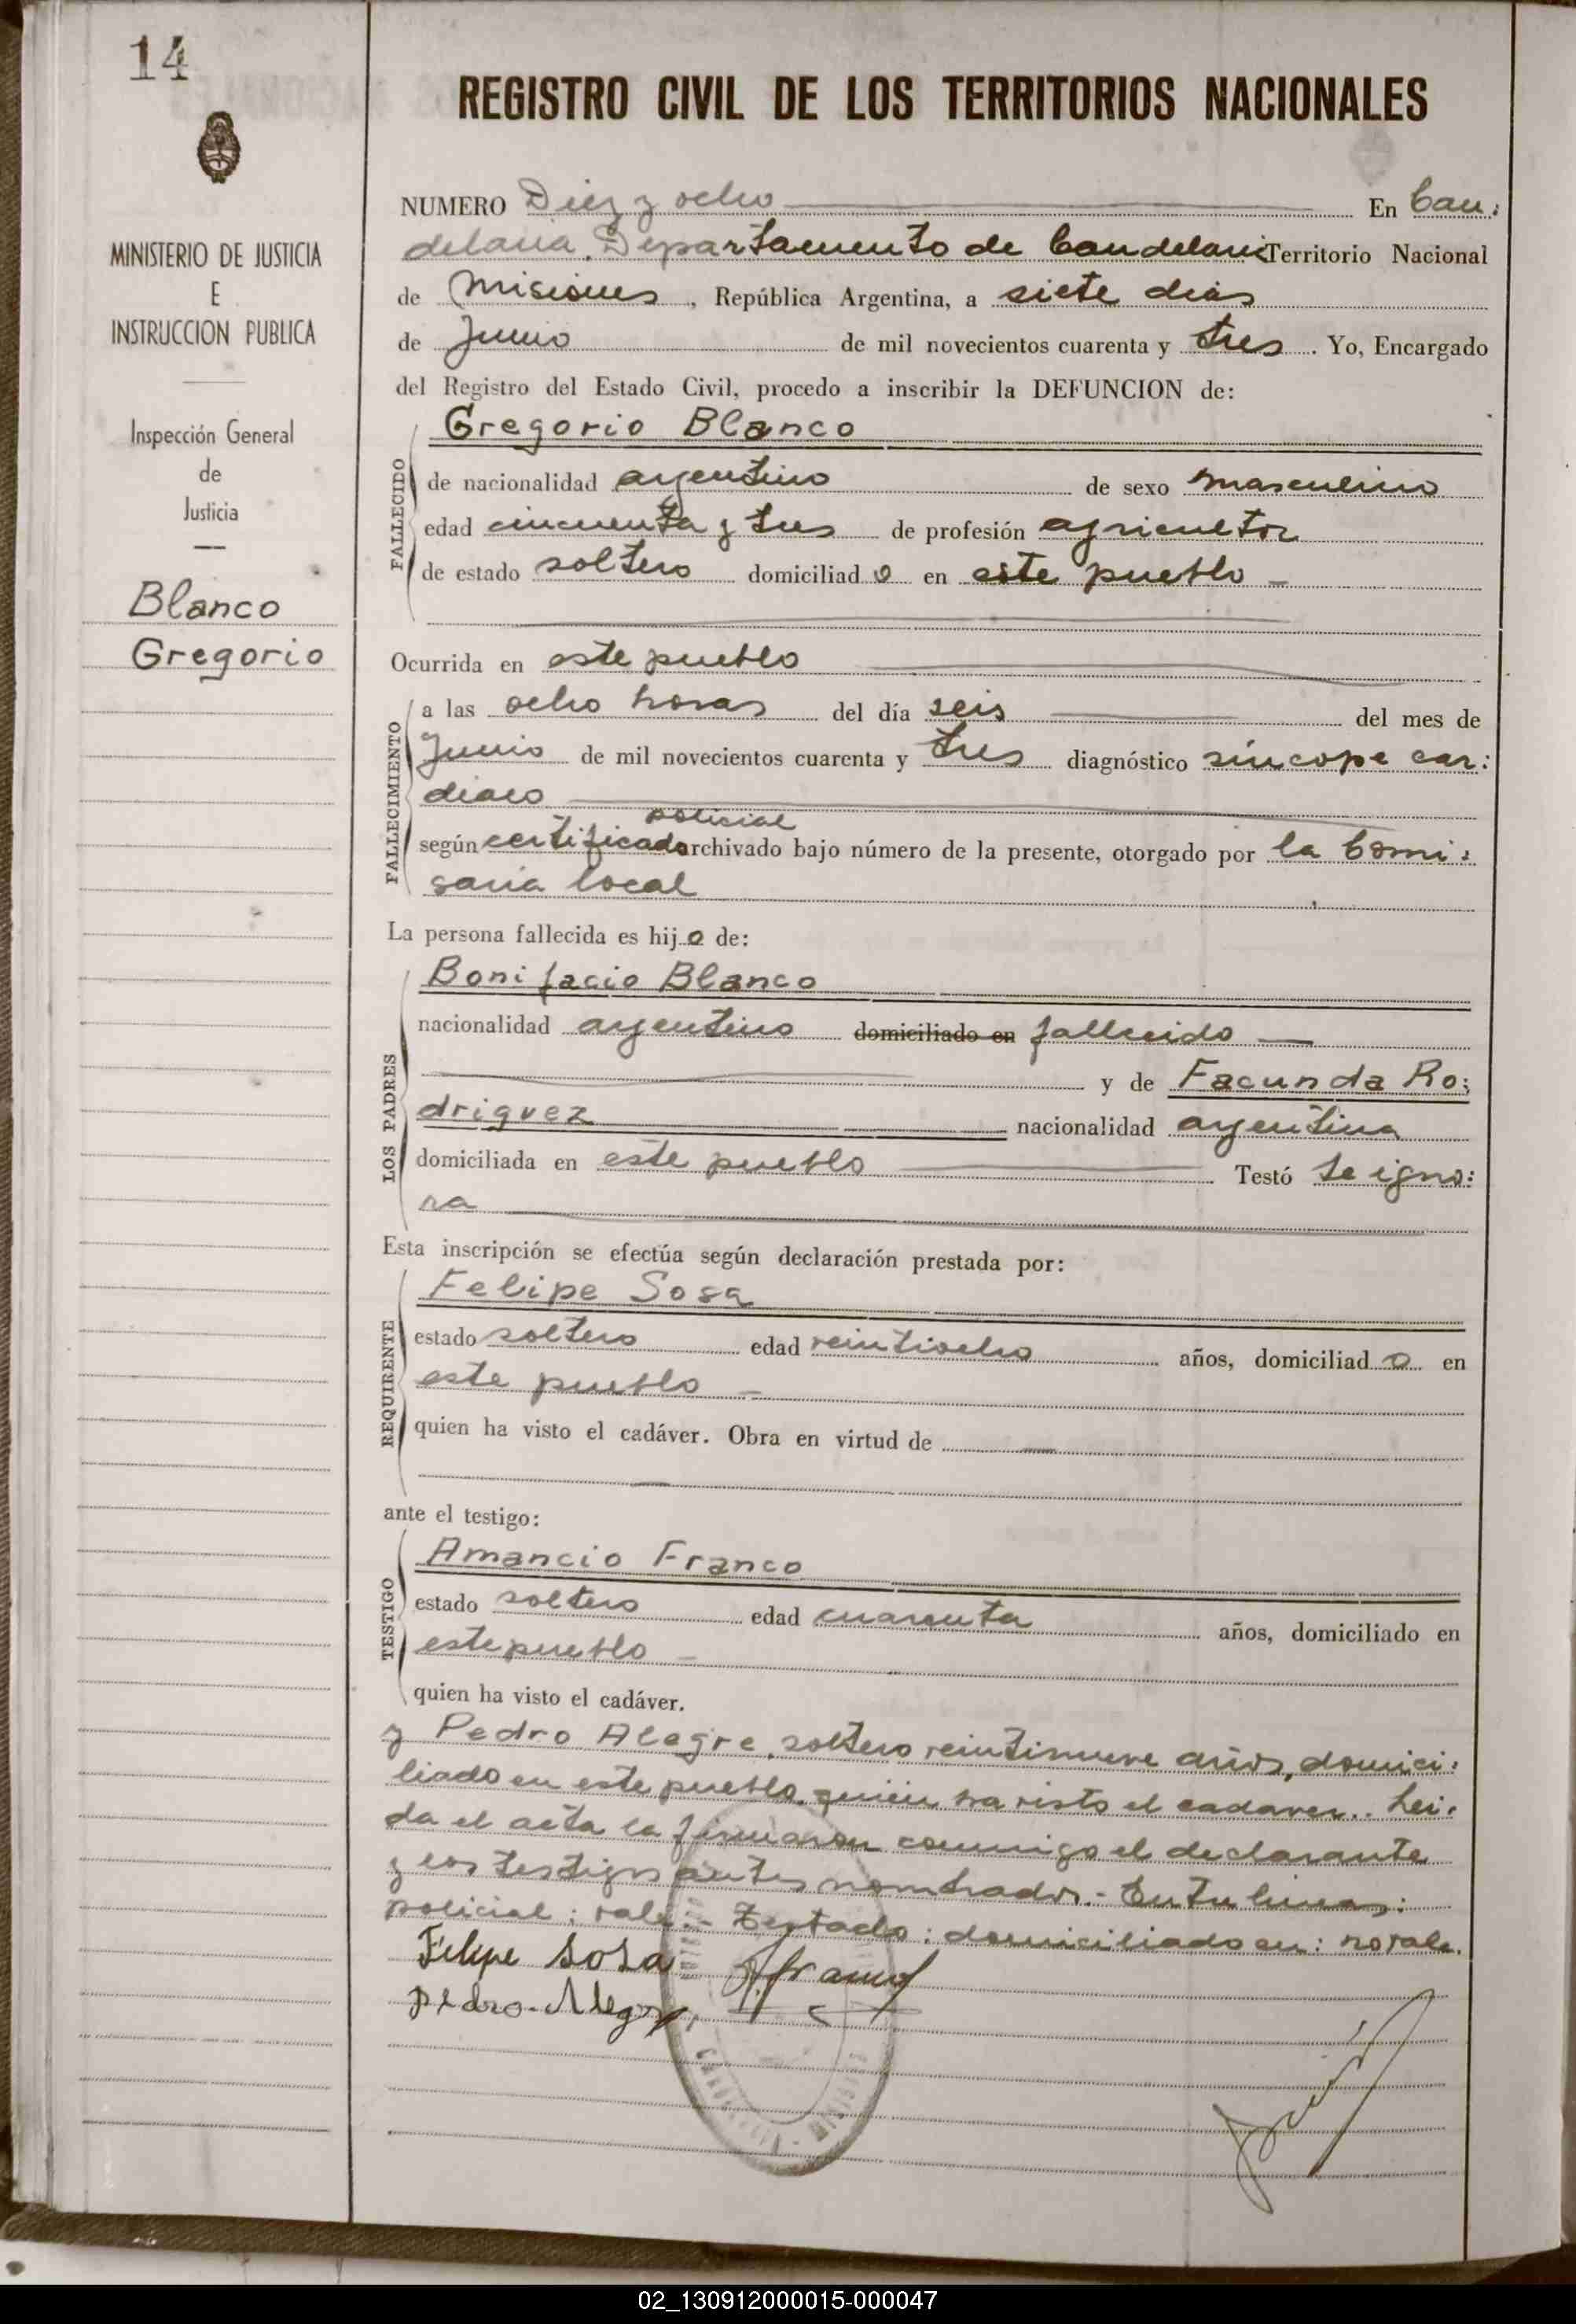 14
REGISTRO CIVIL DE LOS TERRITORIOS NACIONALES
MINISTERIO DE JUSTICIA
E
INSTRUCCION PUBLICA
Inspección General
de
Justicia
Blanco
Gregorio
NUMERO Diez y ocho En Can:
delaria. Departamento de Candelaria Territorio Nacional
de Misiones, República Argentina, a siete dias
de Junio de mil novecientos cuarenta y tres. Yo, Encargado
del Registro del Estado Civil, procedo a inscribir la DEFUNCION de:
FALLECIDO
Gregorio Blanco
de nacionalidad argentino de sexo masculino
edad cincuenta y tres de profesión agricultor
de estado soltero domiciliado en este pueblo
Ocurrida en este pueblo
FALLECIMIENTO
a las ocho horas del día seis del mes de
Junio de mil novecientos cuarenta y tres diagnóstico síncope car:
diaco
policial
según certificado archivado bajo número de la presente, otorgado por la Comi:
saria local
La persona fallecida es hijo de:
LOS PADRES
Bonifacio Blanco
nacionalidad argentino domiciliado en fallecido
y de Facunda Ro:
driguez nacionalidad argentina
domiciliada en este pueblo Testó se igno:
ra
Esta inscripción se efectúa según declaración prestada por:
REQUIRENTE
Felipe Sosa
estado soltero edad veintiocho años, domiciliado en
este pueblo
quien ha visto el cadáver. Obra en virtud de
ante el testigo:
TESTIGO
Amancio Franco
estado soltero edad cuarenta años, domiciliado en
este pueblo
quien ha visto el cadáver.
y Pedro Alegre, soltero veintinueve años, domici:
liado en este pueblo, quién ha visto el cadaver.. Lei:
da el acta la firmaron conmigo el declarante
y los testigos antes nombrados.- Entre lineas:
policial: vale.- Testado: domiciliado en: no vale.
Felipe Sosa
Pedro Alegre
02_130912000015-000047